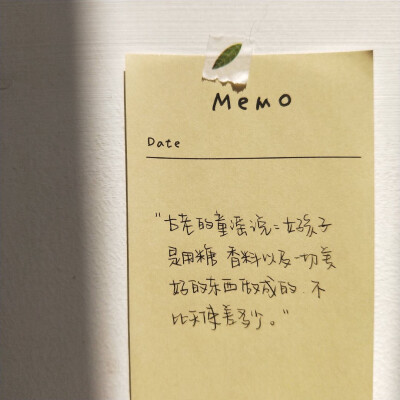 Memo
Date
"古老的童谣说:好孩子
是用糖 香料以及一切美
好的东西做成的.不
比天使差多少。"